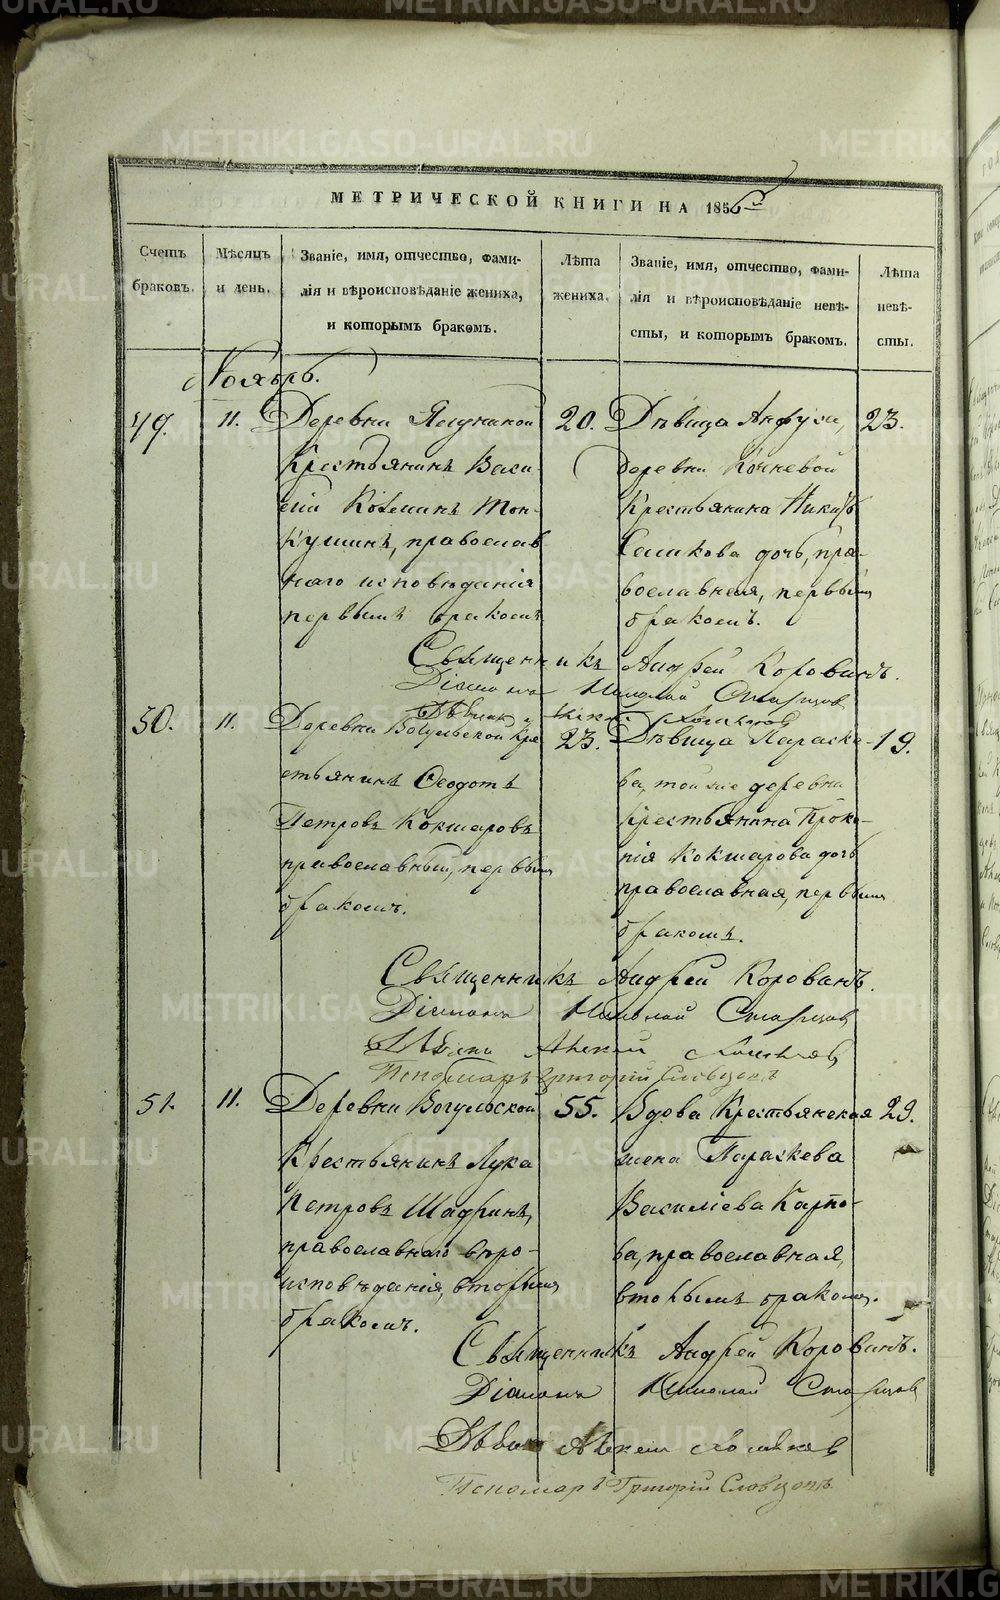 МЕТРИЧЕСКОЙ КНИГИ НА 1856й
Счетъ браковъ.
Мѣсяцъ и день.
Званіе, имя, отчество, фами-
лія и вѣроисповѣданіе жениха,
и которымъ бракомъ.
Лѣта жениха.
Званіе, имя, отчество, фами-
лія и вѣроисповѣданіе невѣ-
сты, и которымъ бракомъ.
Лѣта невѣ-
сты.
Ноябрь.
49.
11.
Деревни
Крестьянинъ Васи-
лій Козминъ Тон-
кушинъ, православ
наго исповѣданія
первымъ бракомъ
20.
Дѣвица Анфуса,
деревни Кочневой
Крестьянина Никиты
дочь, пра-
вославная, первымъ
бракомъ.
23.
Священникъ Андрей Корованъ.
Діаконъ Николай Старцов
50.
11.
Деревни Вогульской Кре
стьянинъ Ѳеодотъ
Петровъ Кокшаровъ
православный, первымъ
бракомъ.
23.
Дѣвица Параске-
ва, той же деревни
Крестьянина Проко-
пія Кокшарова дочь
православная, первымъ
бракомъ.
19.
Священникъ Андрей Корованъ.
Діаконъ Николай Старцов
Дьячекъ Алексей
Пономарь Григорій Словцовъ
51.
11.
Деревни Вогульской
Крестьянинъ Лука
Петровъ Шадринъ,
православнаго вѣро-
исповѣданія, вторымъ
бракомъ.
55.
Вдова Крестьянская
жена Параскева
Василіева Карпо-
ва, православная,
вторымъ бракомъ.
29.
Священникъ Андрей Корованъ.
Діаконъ Николай Старцов
Алексей
Пономарь Григорій Словцовъ
METRIKI.GASO-URAL.RU